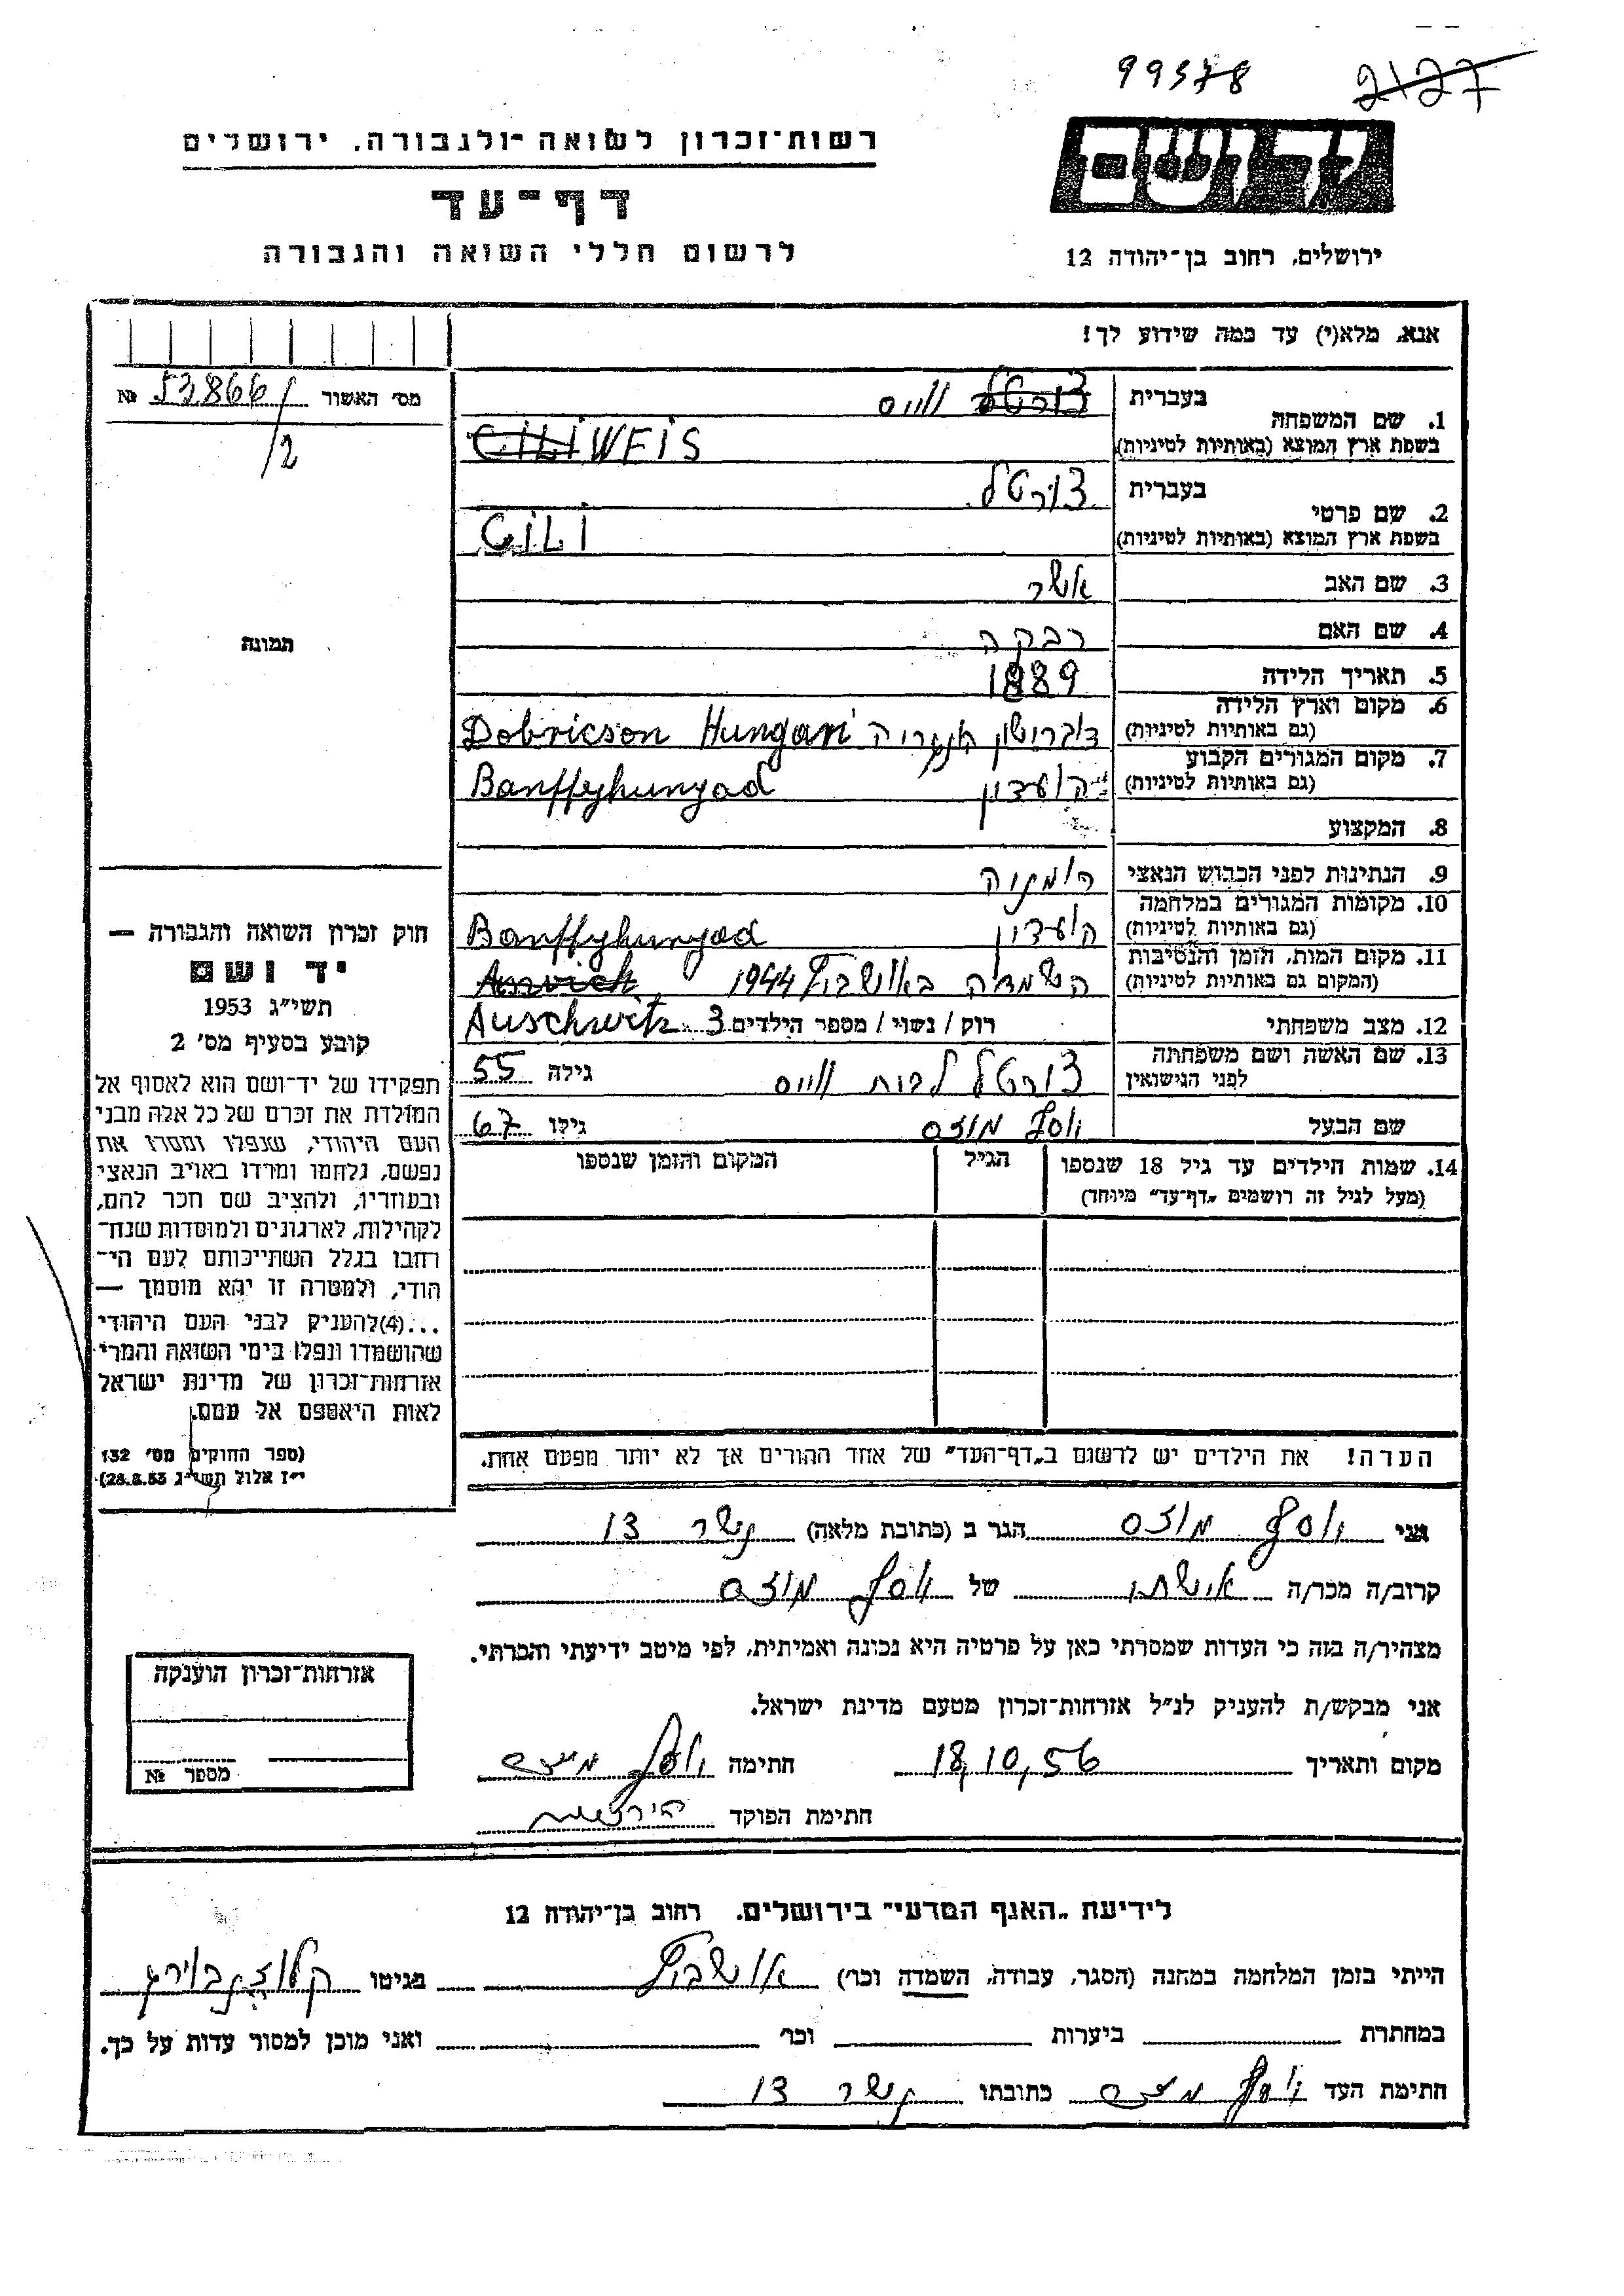 99378
2127
ידושם
רשות־זכרון לשואה ־ולגבורה, ירושלים
דף־עד
לרשום חללי השואה והגבורה
ירושלים, רחוב בן־יהודה 12
אנא, מלא(י) עד כמה שידוע לך!
מס׳ האשור 53866/2 №
1. שם המשפחה
בעברית צורטל ווייס
בשפת ארץ המוצא (באותיות לטיניות) CILI WEIS
2. שם פרטי
בעברית צורטל
בשפת ארץ המוצא (באותיות לטיניות) CILI
3. שם האב אשר
4. שם האם רבקה
5. תאריך הלידה 1889
6. מקום וארץ הלידה
(גם באותיות לטיניות) Dobricson Hungari
7. מקום המגורים הקבוע
(גם באותיות לטיניות) Banffyhunyad
8. המקצוע
9. הנתינות לפני הכבוש הנאצי רומניה
10. מקומות המגורים במלחמה
(גם באותיות לטיניות) Banffyhunyad
11. מקום המות, הזמן והנסיבות
(המקום גם באותיות לטיניות) 1944
Auschwitz
12. מצב משפחתי רוק / נשוי / מספר הילדים 3
13. שם האשה ושם משפחתה
לפני הנישואין צורטל לבית ווייס גילה 55
שם הבעל יוסף מוזס גילו 67
14. שמות הילדים עד גיל 18 שנספו
(מעל לגיל זה רושמים „דף־עד״ מיוחד)
הגיל
המקום והזמן שנספו
תמונה
חוק זכרון השואה והגבורה —
יד ושם
תשי״ג 1953
קובע בסעיף מס׳ 2
תפקידו של יד־ושם הוא לאסוף אל
המולדת את זכרם של כל אלה מבני
העם היהודי, שנפלו ומסרו את
נפשם, נלחמו ומרדו באויב הנאצי
ובעוזריו, ולהציב שם וזכר להם,
לקהילות, לארגונים ולמוסדות שנח־
רבו בגלל השתייכותם לעם הי־
הודי, ולמטרה זו יהא מוסמך —
...(4)להעניק לבני העם היהודי
שהושמדו ונפלו בימי השואה והמרי
אזרחות־זכרון של מדינת ישראל
לאות היאספם אל עמם.
(ספר החוקים מס׳ 132
י״ז אלול תשי״ג 28.8.53)
הערה! את הילדים יש לרשום ב„דף־העד״ של אחד ההורים אך לא יותר מפעם אחת.
אני יוסף מוזס הגר ב (כתובת מלאה) נשר 13
קרוב/ה מכר/ה אישתו של יוסף מוזס
מצהיר/ה בזה כי העדות שמסרתי כאן על פרטיה היא נכונה ואמיתית, לפי מיטב ידיעתי והכרתי.
אני מבקש/ת להעניק לנ״ל אזרחות־זכרון מטעם מדינת ישראל.
מקום ותאריך 18,10,56 חתימה יוסף מוזס
חתימת הפוקד
אזרחות־זכרון הוענקה
מספר №
לידיעת „האגף המדעי״ בירושלים. רחוב בן־יהודה 12
הייתי בזמן המלחמה במחנה (הסגר, עבודה, השמדה וכר׳) אושביץ בגיטו
במחתרת ביערות וכר׳ ואני מוכן למסור עדות על כך.
חתימת העד יוסף מוזס כתובתו נשר 13